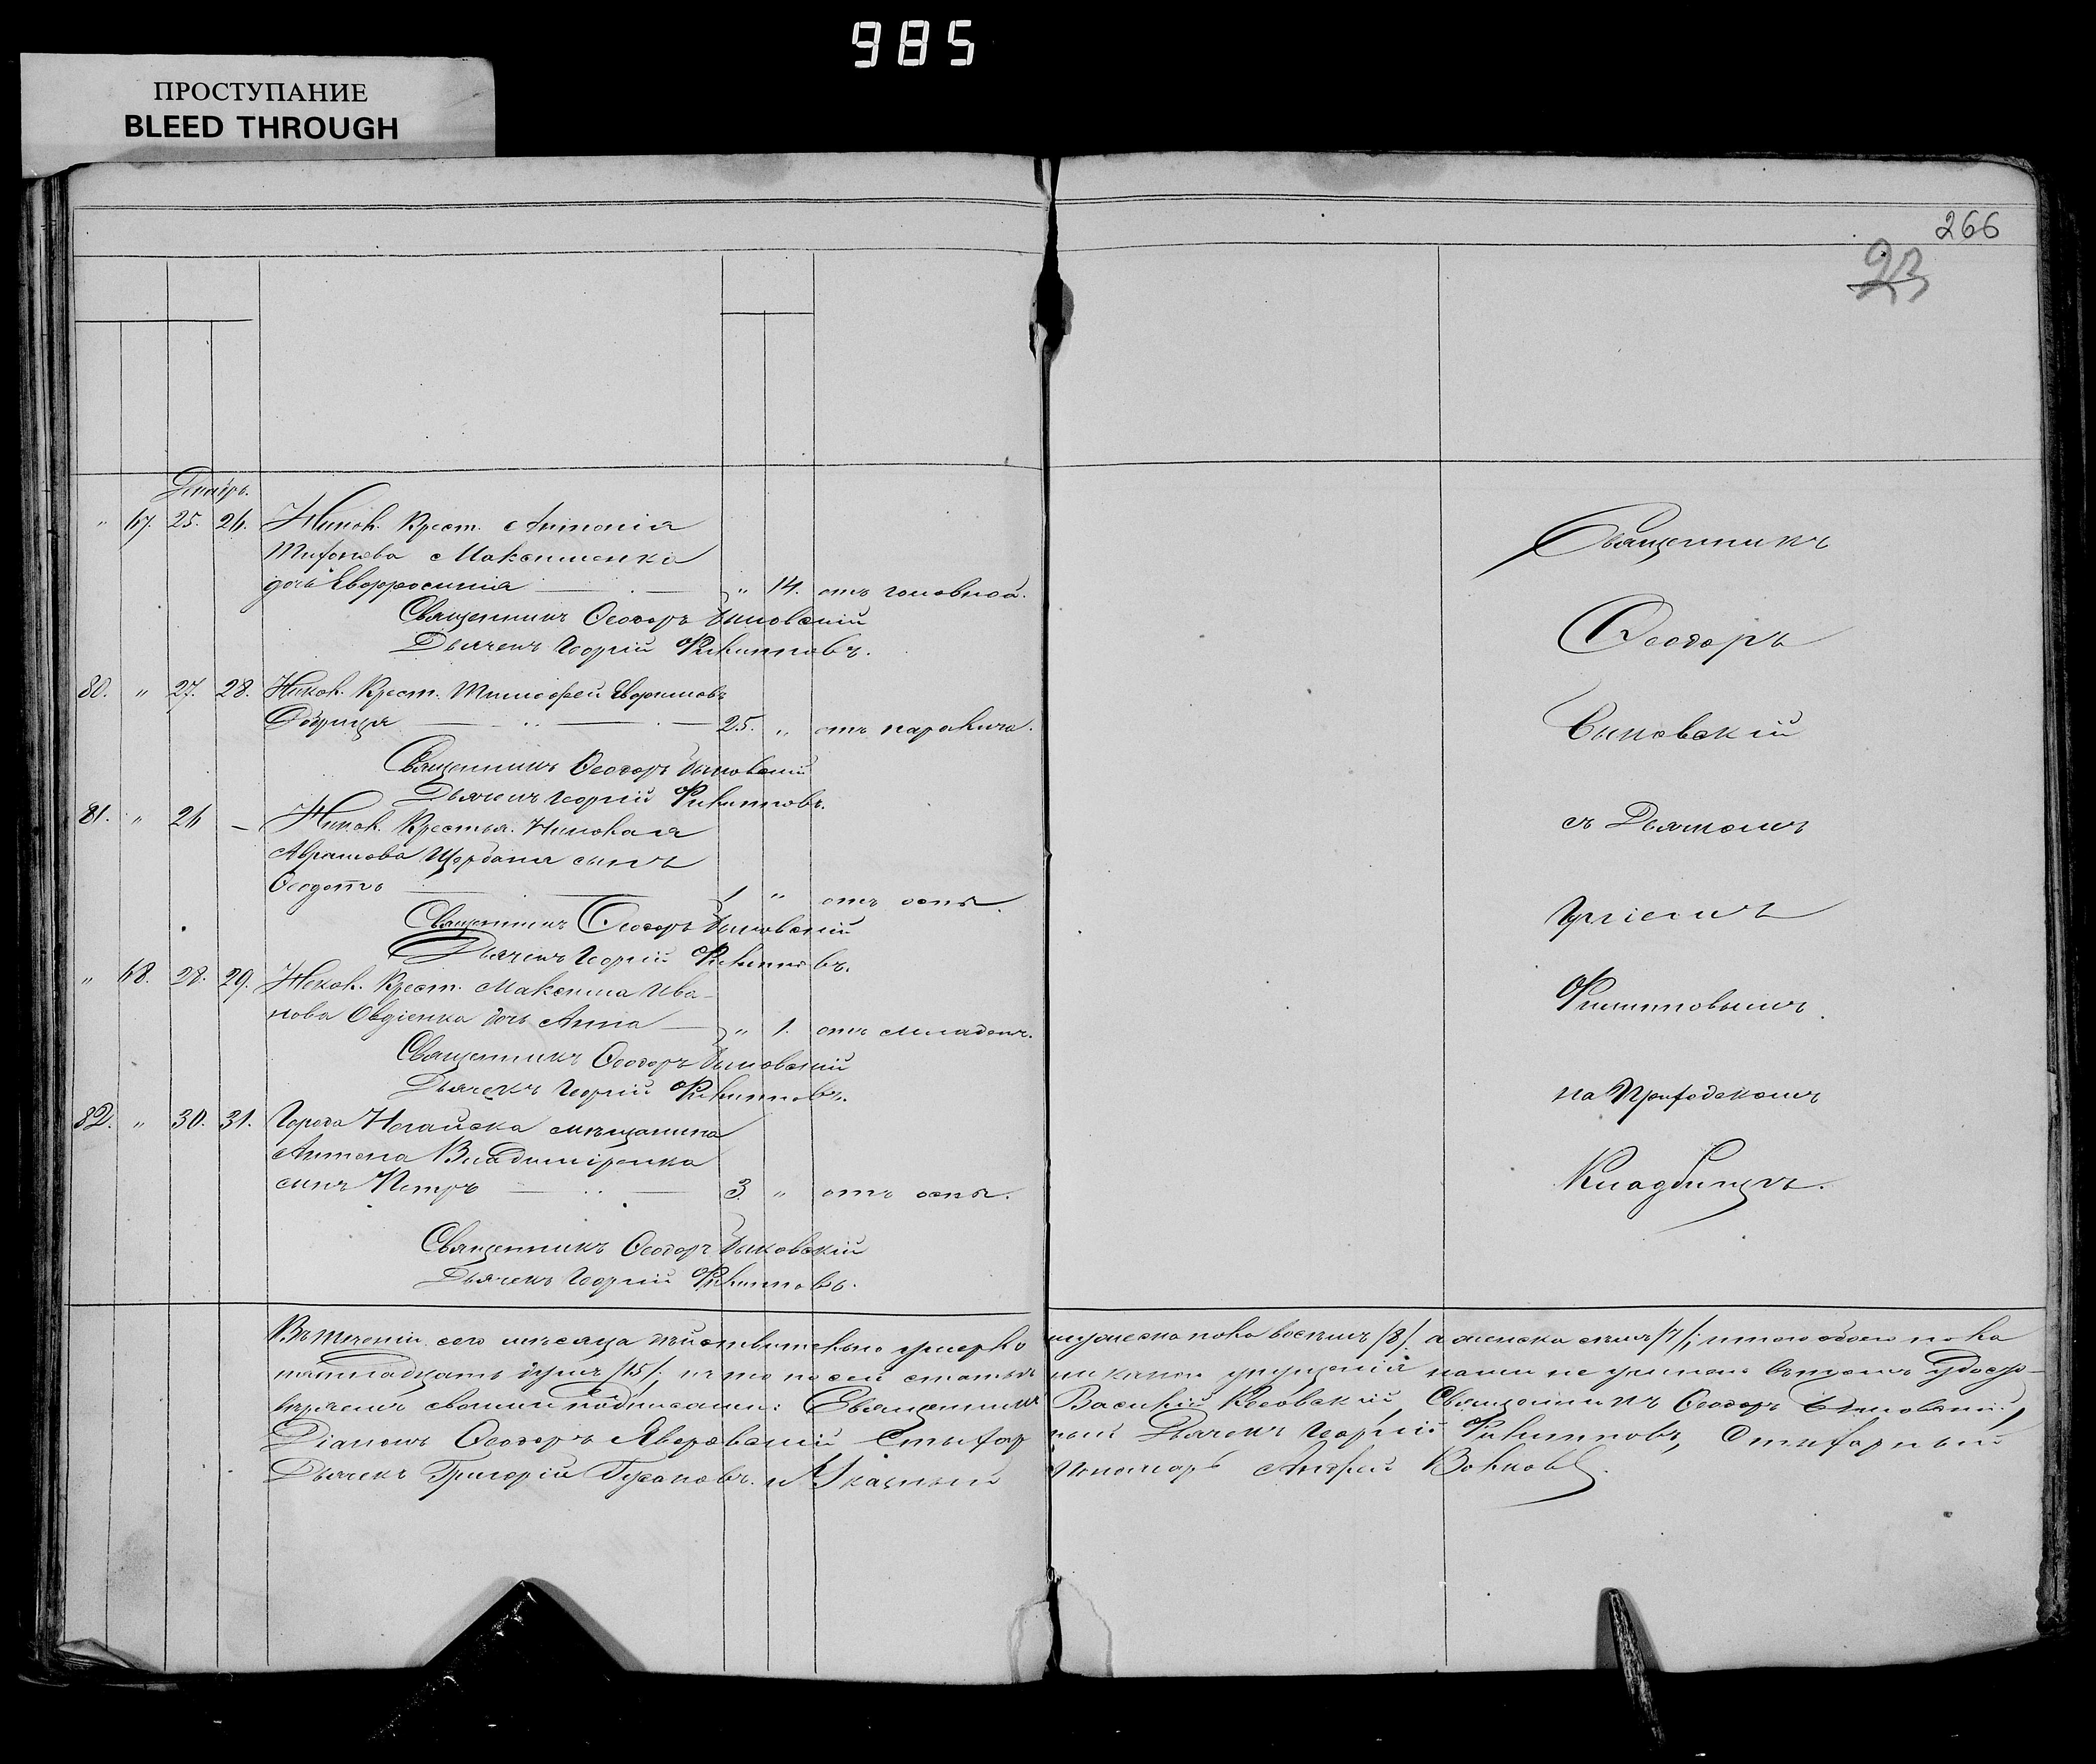 985
ПРОСТУПАНИЕ
BLEED THROUGH
266
23
Декабрь.
" 67. 25. 26. Никол. Крест. Антонія
Тифонова Максименка
дочь Евфросинія " 14. отъ головной.
Священникъ Ѳеодоръ Быковскій
Дьячекъ Георгій Филипповъ.
80. " 27. 28. Никол. Крест. Тимофей Ефимовъ
25. " отъ паралича.
Священникъ Ѳеодоръ Быковскій
Дьячекъ Георгій Филипповъ.
81. " 26 — Никол. Крестья. Николая
Аврамова Щербаня сынъ
Ѳеодотъ 1 " отъ оспы.
Священникъ Ѳеодоръ Быковскій
Дьячекъ Георгій Филипповъ.
" 68. 28. 29. Никол. Крест. Максима Ива-
нова Овдіенка дочь Анна " 1. отъ младен.
Священникъ Ѳеодоръ Быковскій
Дьячекъ Георгій Филипповъ.
82. " 30. 31. Города Ногайска мѣщанина
Антона Владиміренка
сынъ Петръ 3. " отъ оспы.
Священникъ Ѳеодоръ Быковскій
Дьячекъ Георгій Филипповъ.
Священникъ
Ѳеодоръ
Быковскій
съ Дьячкомъ
Филипповымъ
на Приходскомъ
Кладбищѣ.
Въ теченіи сего мѣсяца дѣйствительно умерло мужеска пола восемь /8/. а женска семь /7/; итого обоего пола
пятнадцать душъ /15/; и что по сей статьи никакого упущенія нами не учинено въ томъ удосто-
вѣряемъ своими подписами: Священникъ Василій Священникъ Ѳеодоръ Быковскій,
Діаконъ Ѳеодоръ Яворовскій Стихар ный Дьячекъ Георгій Филипповъ, Стихарный
Дьячекъ Григорій и Указный Пономарь Андрей Волковъ.